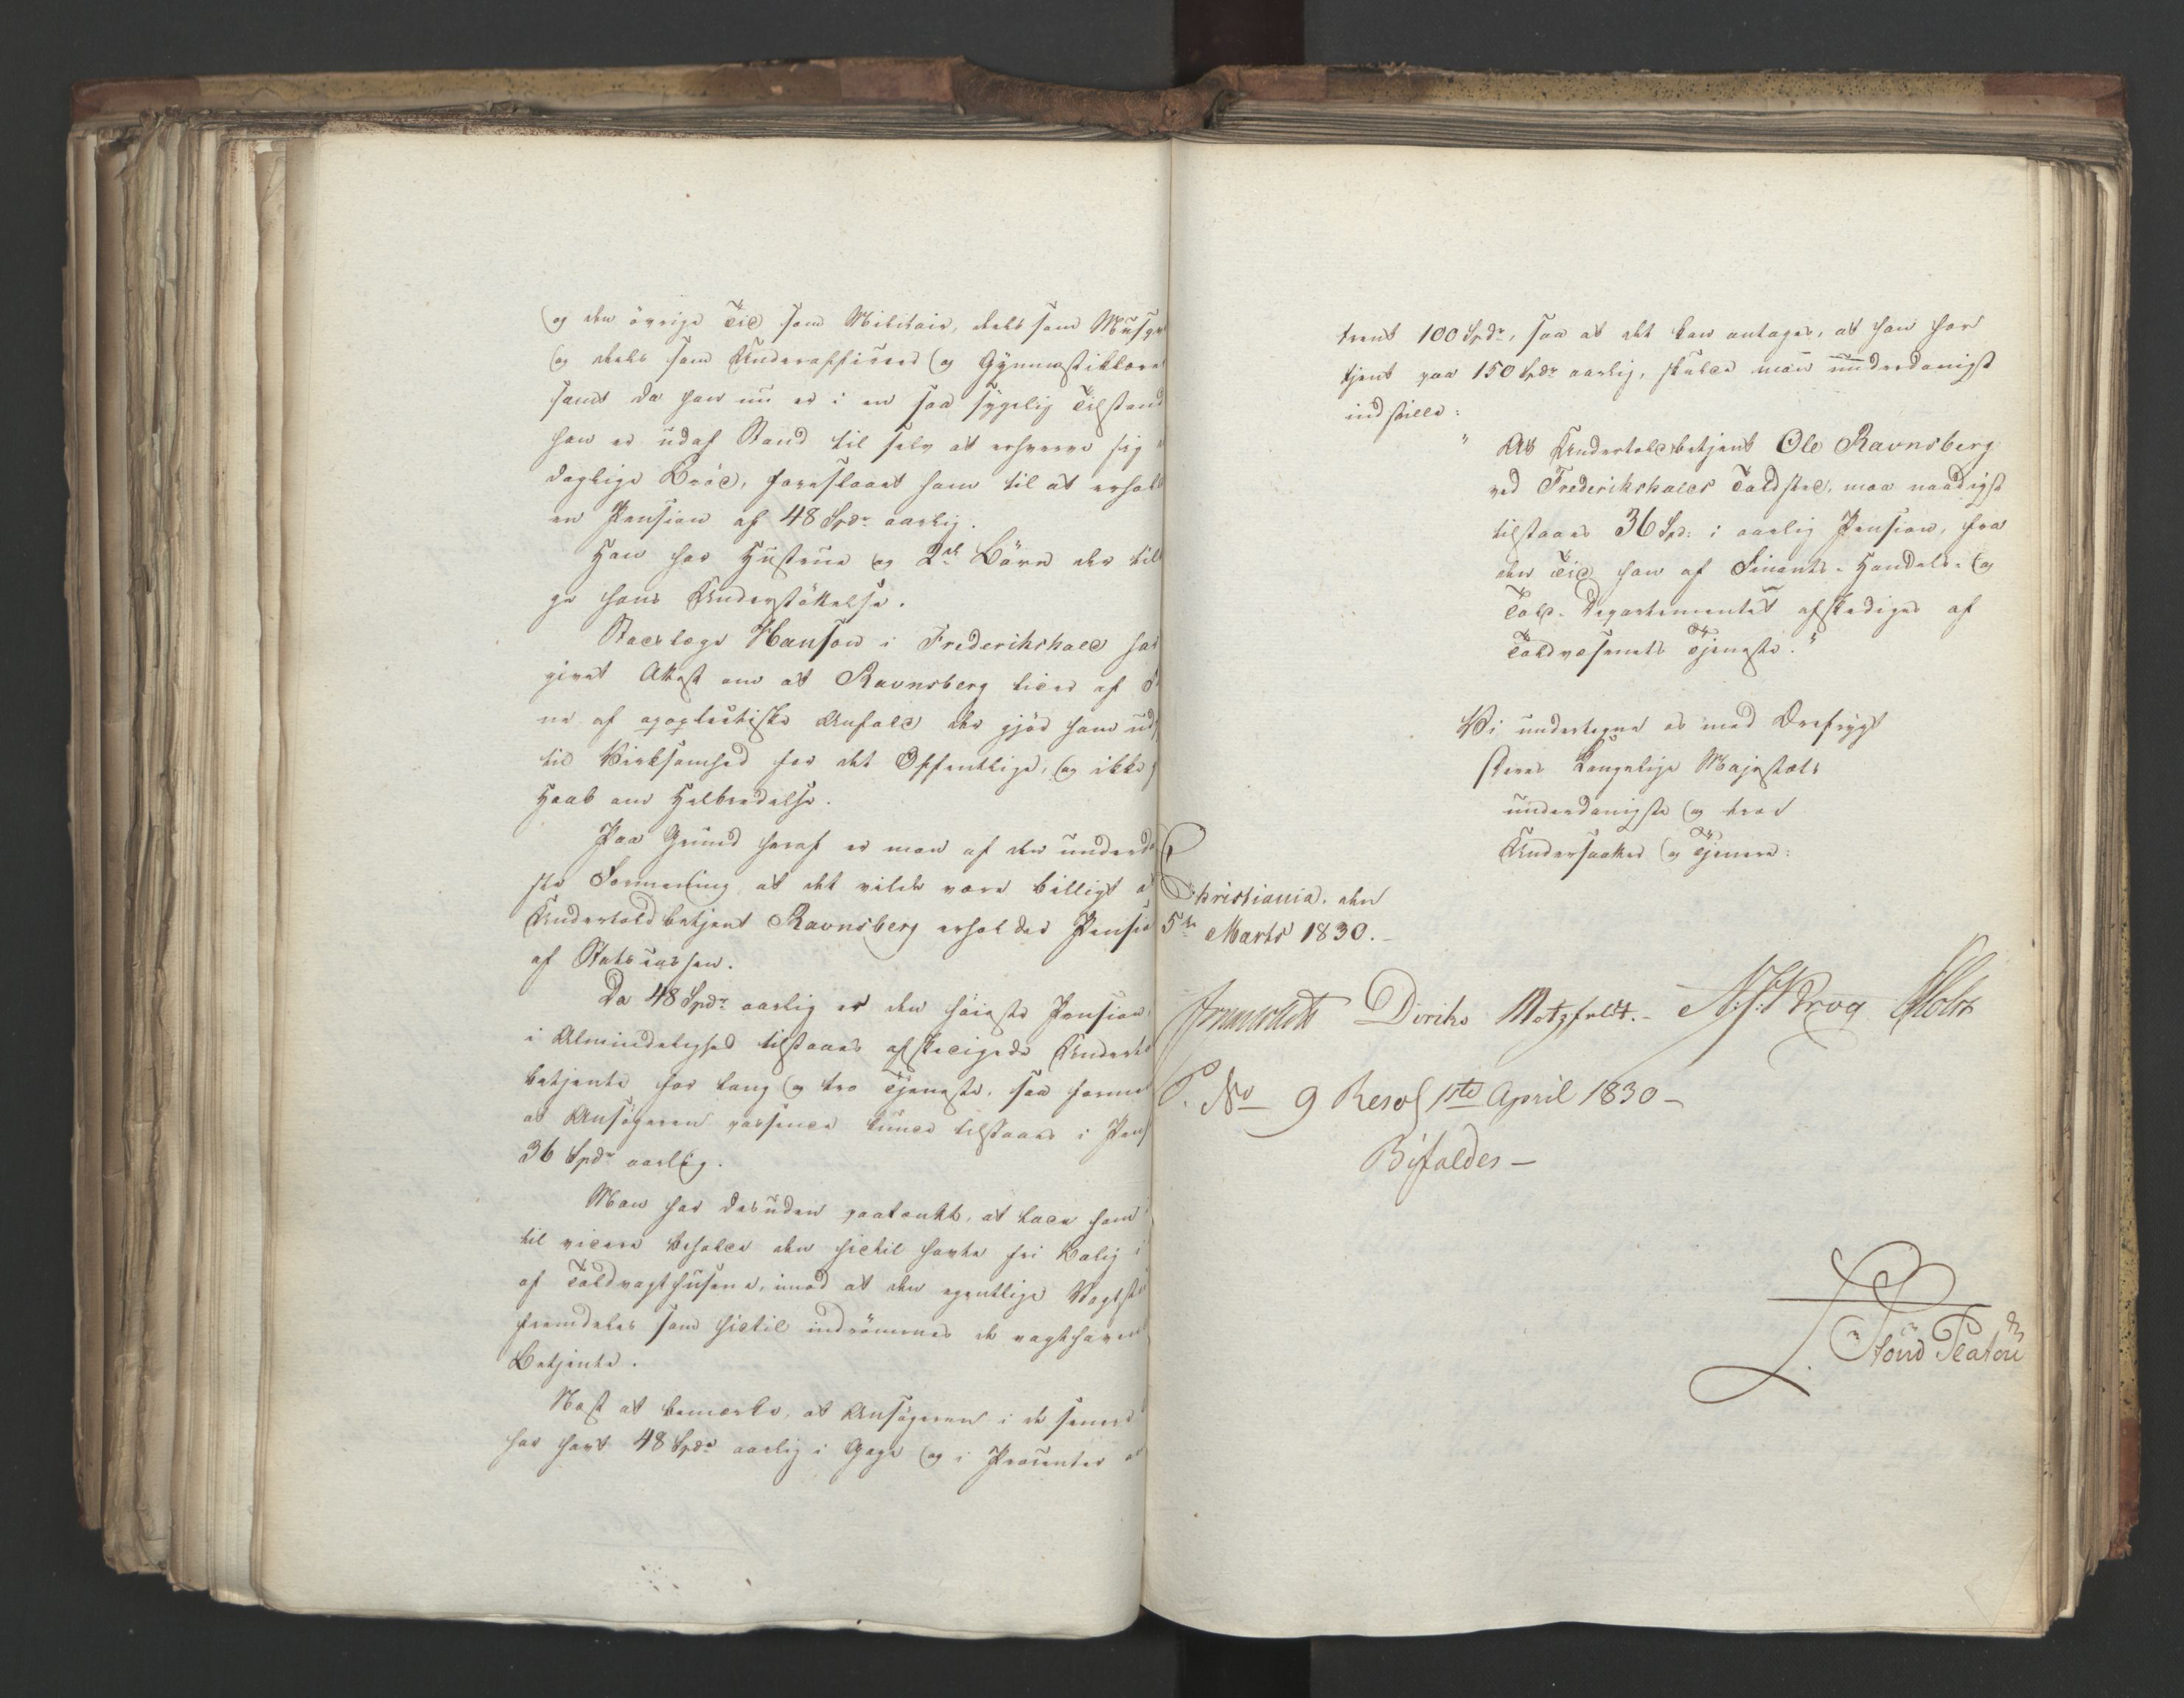 og den övrige Tid som Militair, deels som Musqu
og deels som Underofficeer og Gymnastiklærer
samt da han nu er i en saa sygelig Tilstand
han er udaf Stand til selv at erhverve sig
daglige Bröd, foreslaaet ham til at erhol
en Pension af 48 Spdr aarlig.
Han har Hustrue og 2de Börn der til
ge hans Understöttelse.
Stadslæge Hanson i Frederikshald har
givet Attest om at Ravnsberg lider af
ne af apoplectiske Anfald der gjör ham ud
til Virksomhed for det Offentlige, og ikke
Haab om Helbredelse.
Paa Grund heraf er man af den underd
ste Formening at det vilde være billigt a
Undertoldbetjent Ravnsberg erholder Pensio
af Statscassen.
Da 48 Spdr aarlig er den höieste Pension
i Almindelighed tilstaaes afskedigede Underto
betjente for lang og tro Tjeneste, saa forme
at Ansögeren passende kunde tilstaaes i Pens
36 Spdr aarlig.
Man har desuden paatænkt, at lade ham
til videre beholde den hidtil havte fri Bolig i
af Toldvagthusene, imod at den egentlige Vagtst
fremdeles som hidtil indrömmes de vagthaven
Betjente.
Næst at bemærke, at Ansögeren i de senere
har havt 48 Spdr aarlig i Gage og i Procenter
trent 100 Spdr, saa at det kan antages, at han har
tjent paa 150 Spdr aarlig, skulde man underdanigst
indstille:
" At Undertoldbetjent Ole Ravnsberg
ved Frederikshalds Toldsted, maa naadigst
tilstaaes 36 Spd: i aarlig Pension, fra
den Tid han af Finants- Handels- og
Told-Departementet afskediges af
Toldvæsenets Tjeneste."
Vi undertegne os med Ærefrygt
Deres Kongelige Majestæts
underdanigste og troe
Undersaatter og Tjenere:
Christiania, den
5te Marts 1830.-
Diriks Motzfeldt.- Krog Holst
P. No 9 Resol 1ste April 1830 -
Bifaldes -